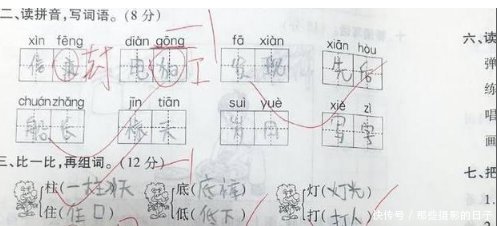 二、读拼音,写词语。(8分)
xìn fēng diàn gōng fā xiàn xiān hòu
信 封 电 工 发现 先后
chuán zhǎng jīn tiān suì yuè xiě zì
船长 天 岁月 写字
三、比一比,再组词。(12分)
柱(一柱 天) 底(底 ) 灯(灯光)
住(住口) 低(低下) 打(打人)
六、读
弹
练
唱
画
七、把
1.
2
快传号/那些摄影的日子